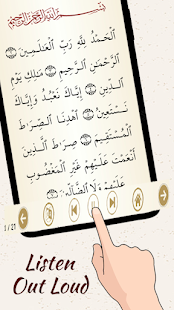 بِسْمِ اللَّهِ الرَّحْمَٰنِ الرَّحِيمِ
ٱلْحَمْدُ لِلَّهِ رَبِّ ٱلْعَـٰلَمِينَ
ٱلرَّحْمَـٰنِ ٱلرَّحِيمِ مَـٰلِكِ يَوْمِ
ٱلدِّينِ إِيَّاكَ نَعْبُدُ وَإِيَّاكَ
نَسْتَعِينُ ٱهْدِنَا ٱلصِّرَٰطَ
ٱلْمُسْتَقِيمَ صِرَٰطَ ٱلَّذِينَ
أَنْعَمْتَ عَلَيْهِمْ غَيْرِ ٱلْمَغْضُوبِ
عَلَيْهِمْ وَلَا ٱلضَّآلِّينَ
1 / 21
Listen
Out Loud